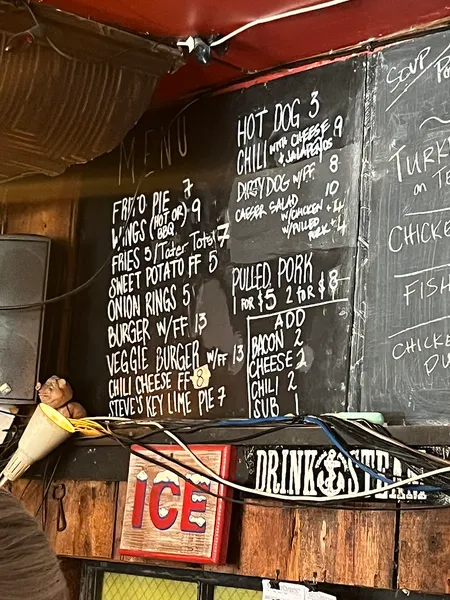 MENU
FRITO PIE 7
WINGS (HOT OR BBQ) 9
FRIES 5/Tater Tots 7
SWEET POTATO FF 5
ONION RINGS 5
BURGER W/FF 13
VEGGIE BURGER W/FF 13
CHILI CHEESE FF 8
STEVE'S KEY LIME PIE 7
HOT DOG 3
CHILI WITH CHEESE & JALAPENOS 9
DIRTY DOG W/FF 8
CAESER SALAD 10
W/CHICKEN +4
W/PULLED PORK +4
PULLED PORK
1 FOR $5 2 FOR $8
ADD
BACON 2
CHEESE 2
CHILI 2
SUB 1
SOUP
TURK
ON TE
CHICKE
FISH
CHICKE
ICE
DRINK STEA